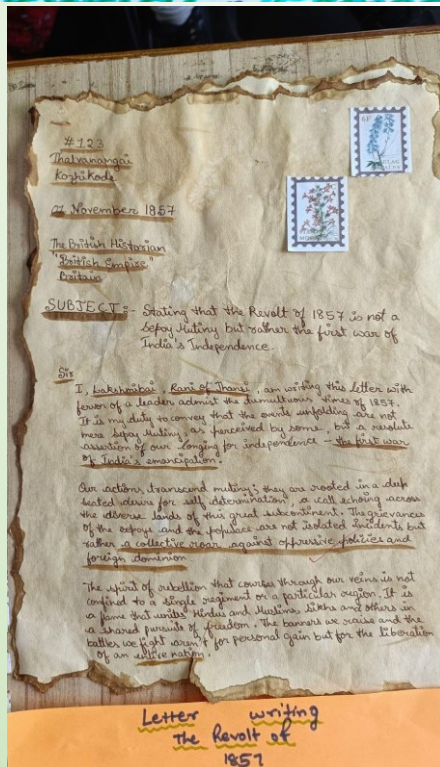 #123
Thalvanangai
Kozhikode
01 November 1857
The British Historian
"British Empire"
Britain
SUBJECT :- Stating that the Revolt of 1857 is not a
Sepoy Mutiny but rather the first war of
India's Independence.
Sir
I, Lakshmibai, Rani of Jhansi, am writing this letter with
fervor of a leader admist the tumultuous times of 1857.
It is my duty to convey that the events unfolding are not
mere Sepoy Mutiny, as perceived by some, but a resolute
assertion of our longing for independence - the first war
of India's emancipation.
Our actions transcend mutiny; they are rooted in a deep
seated desire for self determination, a call echoing across
the diverse lands of this great subcontinent. The grievances
of the sepoys and the populace are not isolated incidents but
rather a collective roar against oppressive policies and
foreign dominion
The spirit of rebellion that courses through our veins is not
confined to a single regiment or a particular region. It is
a flame that unites Hindus and Muslims, Sikhs and others in
a shared pursuit of freedom. The banners we raise and the
battles we fight aren't for personal gain but for the liberation
of an entire nation.
Letter writing
The Revolt of
1857